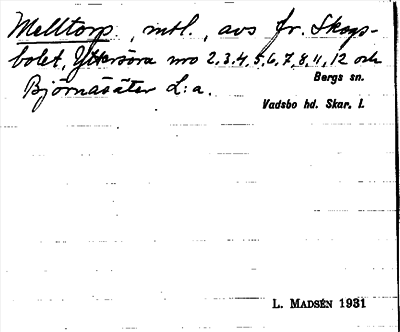 Melltorp, mtl., avs fr. Skogs-
bolet, Yttersöra nro 2,3,4,5,6,7,8,11,12 och
Björnasäter L:a.
Bergs sn.
Vadsbo hd. Skar. l.
L. MADSÉN 1931